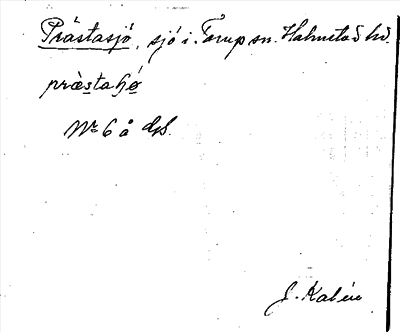 Prästasjö, sjö i Torup sn. Halmstad hd.
præstaɧø
Nr 6 å Gsk.
J. Kalén